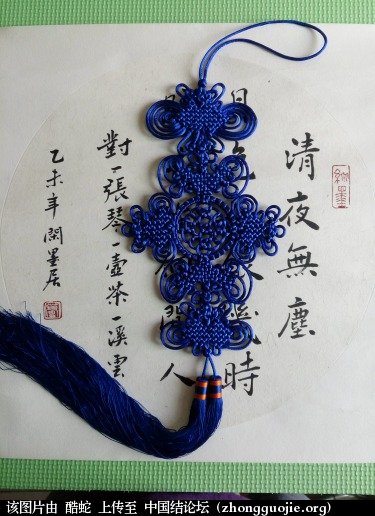 清夜無塵
月 幾時
閒人
對一張琴一壺茶一溪雲
乙未年 墨居
该图片由 酷蛇 上传至 中国结论坛 (zhongguojie.org)